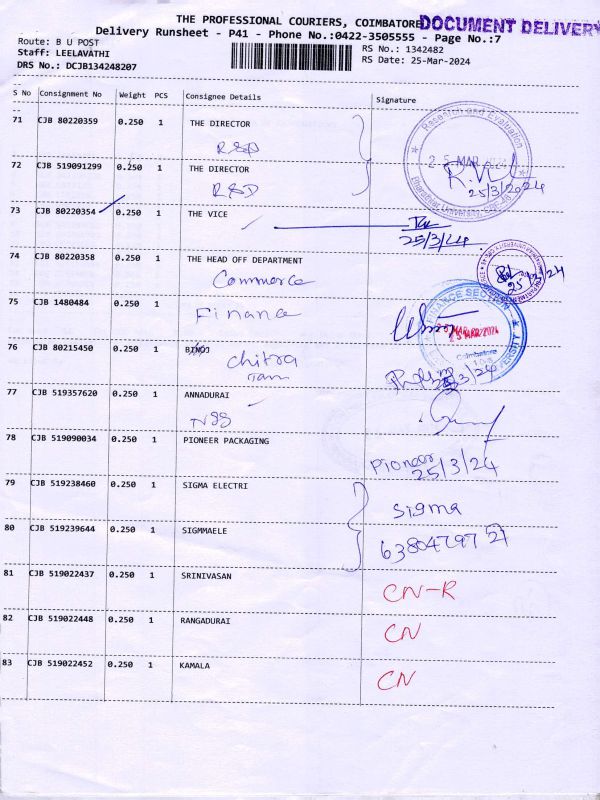 THE PROFESSIONAL COURIERS, COIMBATORE DOCUMENT DELIVERY
Delivery Runsheet - P41 - Phone No.:0422-3505555 - Page No.:7
Route: B U POST
RS No.: 1342482
Staff: LEELAVATHI
RS Date: 25-Mar-2024
DRS No.: DCJB134248207
S No Consignment No Weight PCS Consignee Details Signature
71 CJB 80220359 0.250 1 THE DIRECTOR
R&D
Research and Evaluation
25 MAR 2024
25/3/2024
Bharathiar University, CBE-46
72 CJB 519091299 0.250 1 THE DIRECTOR
R&D
73 CJB 80220354 0.250 1 THE VICE
25/3/24
74 CJB 80220358 0.250 1 THE HEAD OFF DEPARTMENT
Commerce
25/3/24
75 CJB 1480484 0.250 1
Finance
FINANCE SECTION
25 MAR 2024
Coimbatore
76 CJB 80215450 0.250 1 BINOJ
Chitra
Tam
25/3/24
77 CJB 519357620 0.250 1 ANNADURAI
NSS
78 CJB 519090034 0.250 1 PIONEER PACKAGING
Pioneer
25/3/24
79 CJB 519238460 0.250 1 SIGMA ELECTRI
Sigma
80 CJB 519239644 0.250 1 SIGMMAELE
81 CJB 519022437 0.250 1 SRINIVASAN
CN-R
82 CJB 519022448 0.250 1 RANGADURAI
CN
83 CJB 519022452 0.250 1 KAMALA
CN